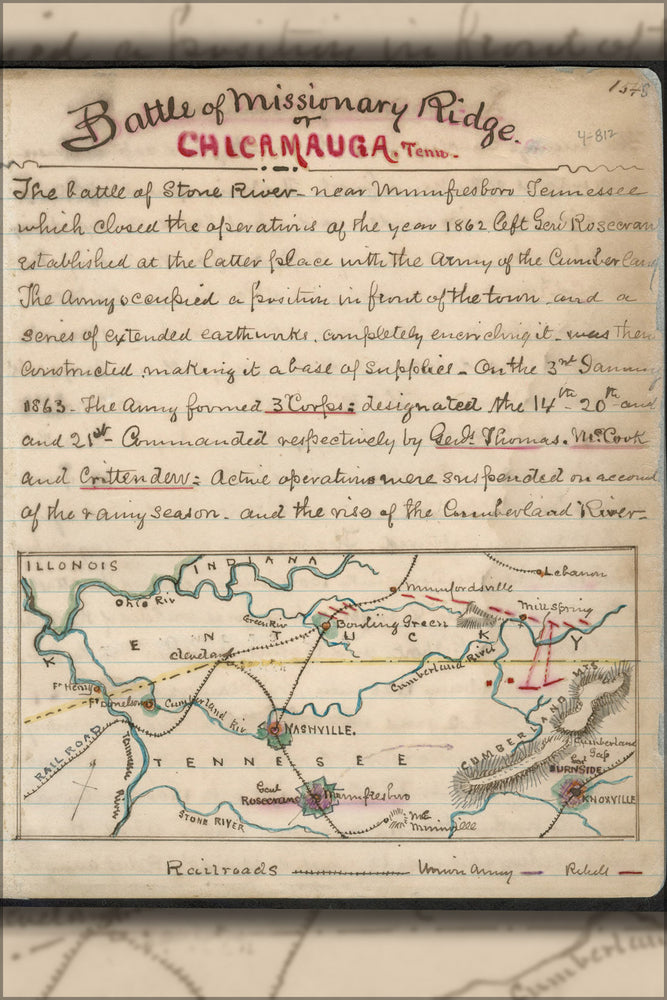 1578
Battle of Missionary Ridge.
or
CHICAMAUGA. Tenn.
4-812
The battle of Stone River - near Murmfresboro Tennessee
which closed the operations of the year 1862 left Genl Rosecran
established at the latter place with the Army of the Cumberland
The Army occupied a position in front of the town and a
series of extended earthworks, completely encircling it - was then
constructed, making it a base of supplies - On the 3rd January
1863 - The Army formed 3 Corps: designated the 14th - 20th and
and 21st - Commanded respectively by Genls Thomas. McCook
and Crittenden: Active operations were suspended on account
of the rainy season - and the rise of the Cumberland River -
ILLONOIS
INDIANA
Lebanon
Ohio Riv
Mumfordsville
Mill Spring
Green Riv
Bowling Green
KENTUCKY
Cleveland
Cumberland River
Ft Henry
Ft Donelson
Cumberland Riv
CUMBERLAND MTS
NASHVILLE.
Cumberland
Gap
RAIL ROAD
TENNESSEE
Genl
BURNSIDE
Tennessee River
Genl
Rosecrans
Murmfresboro
KNOXVILLE
STONE RIVER
Mc
Minnville
Railroads
Union Army
Rebels